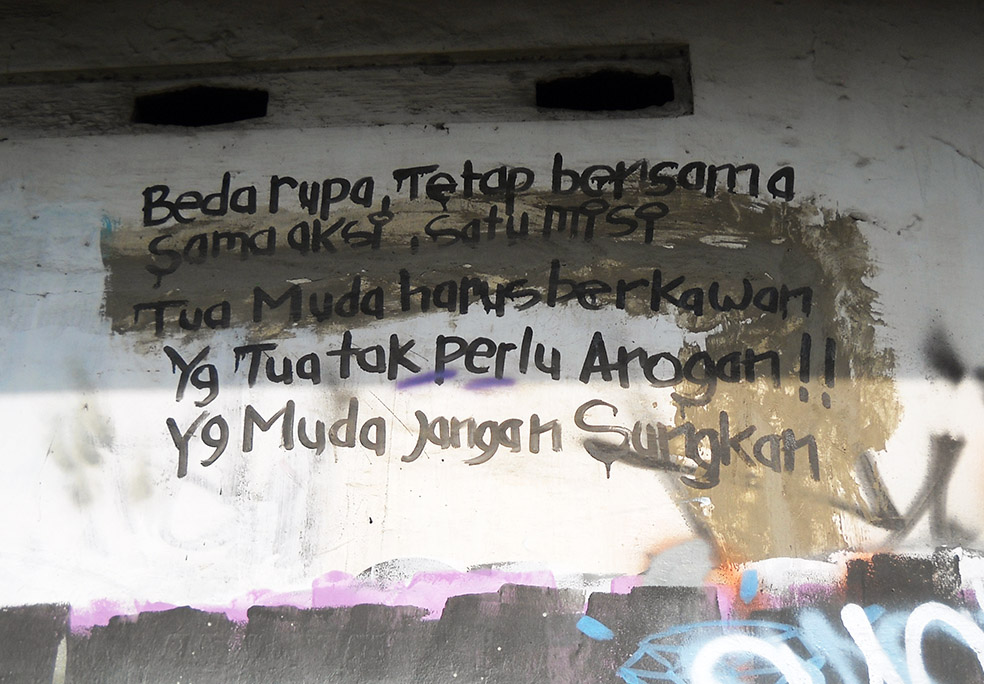 Beda rupa, Tetap bersama
Sama aksi, Satu misi
Tua Muda harus berkawan
Yg Tua tak perlu Arogan!!
Yg Muda jangan Sungkan